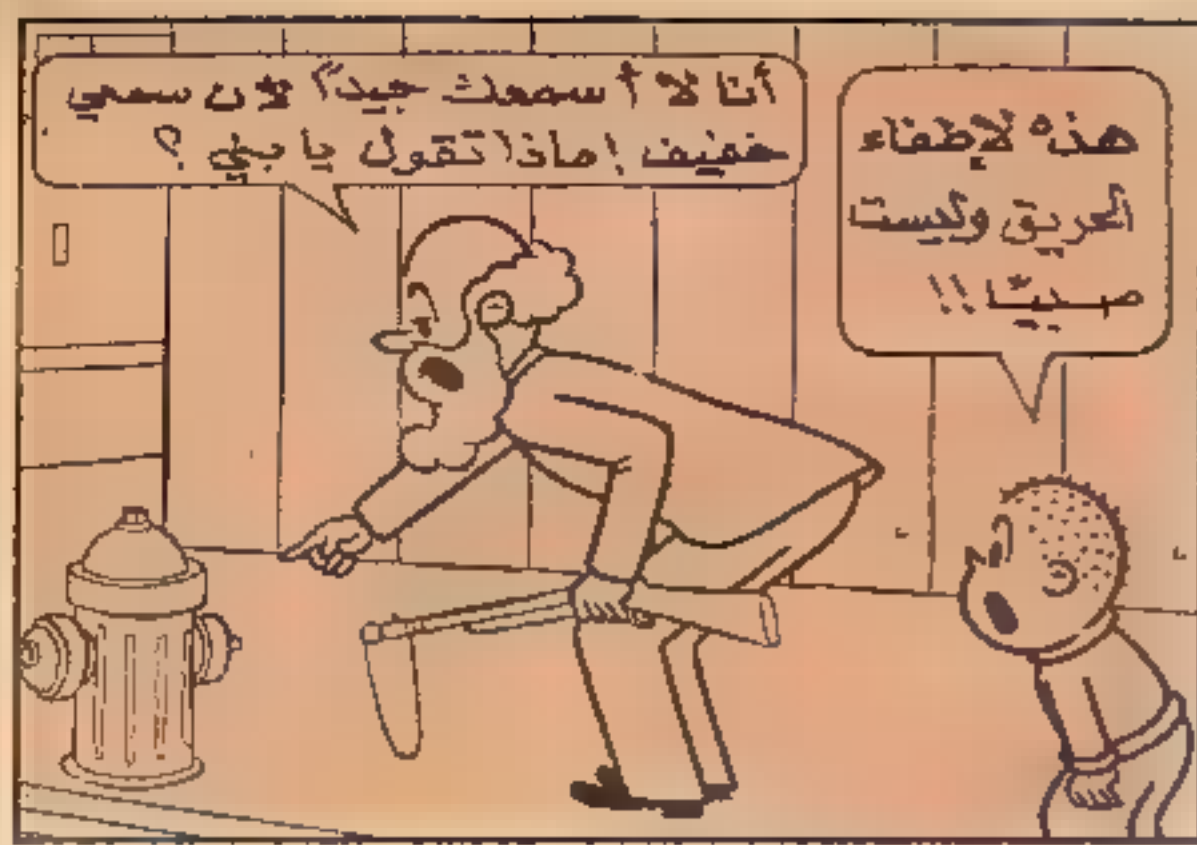 هذه لإطفاء
الحريق وليست
صبيّا !!
أنا لا أسمعك جيداً لأن سمعي
خفيف ! ماذا تقول يا بني ؟